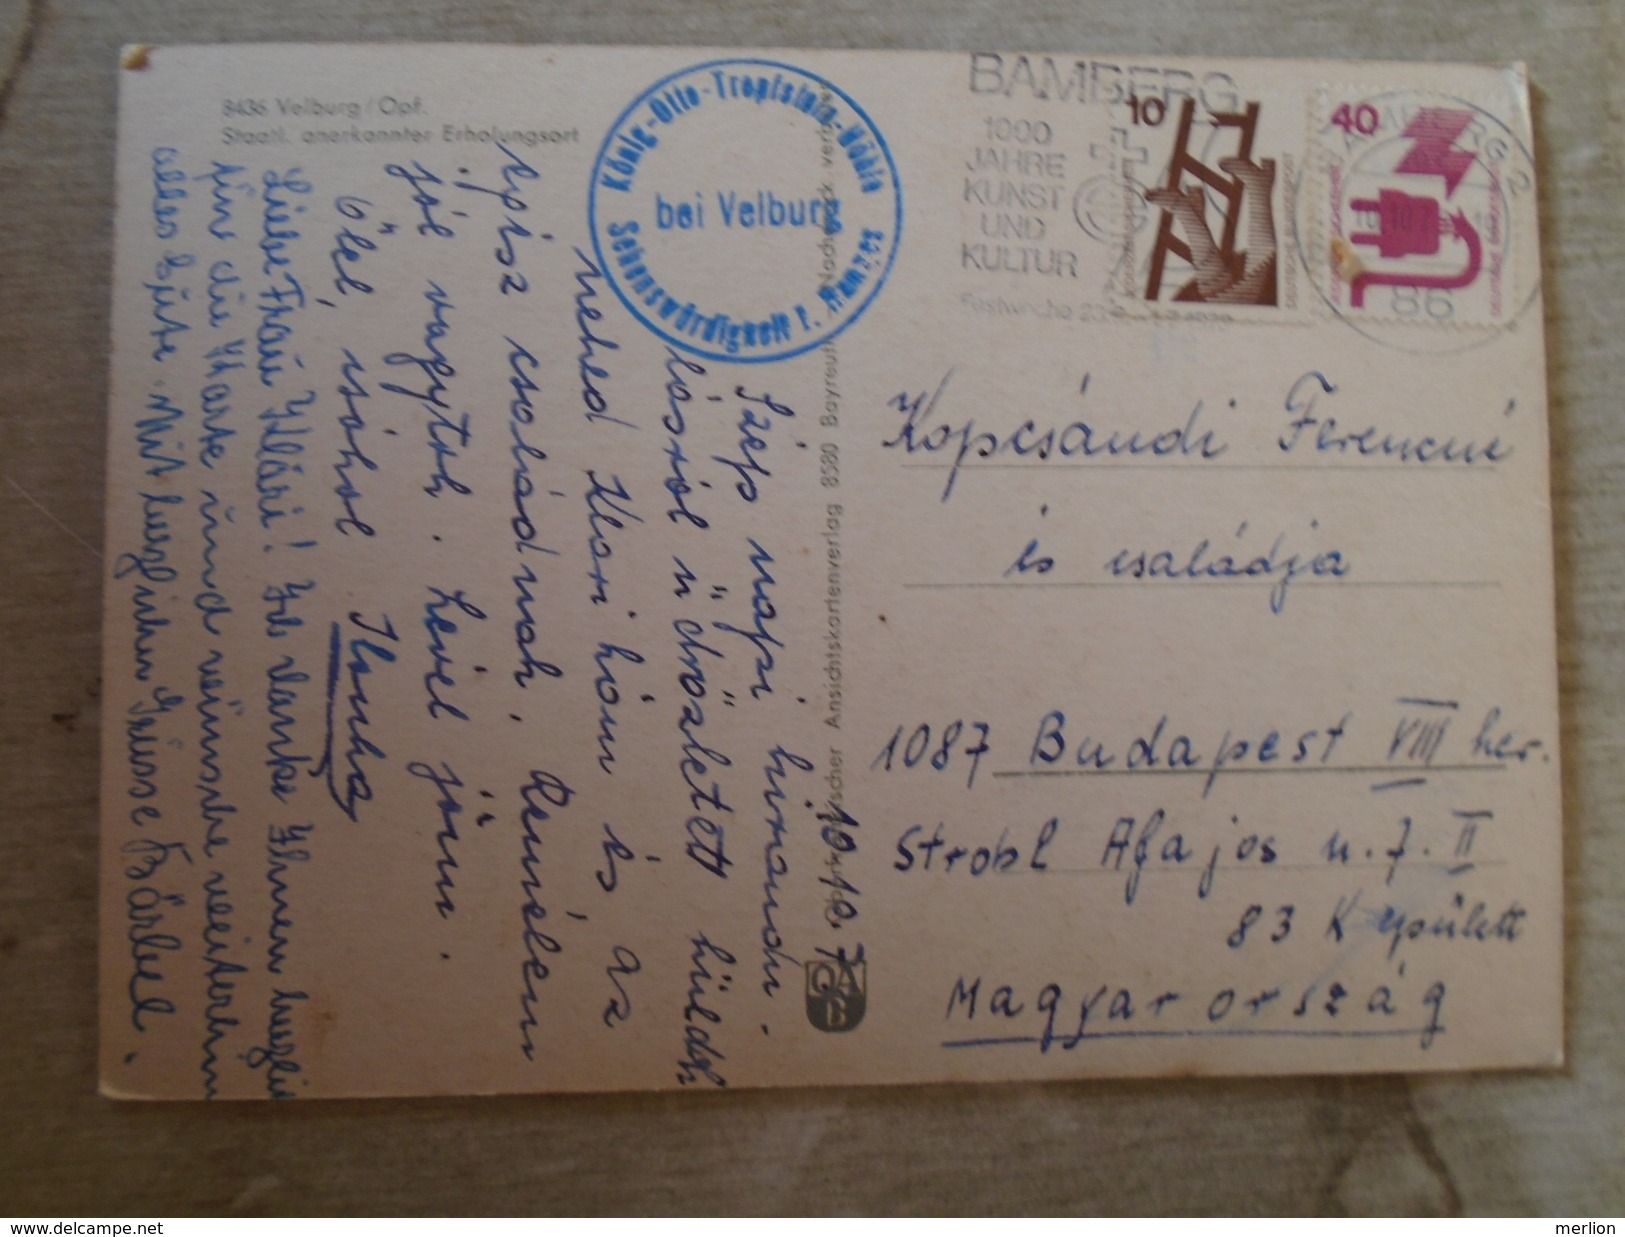 8436 Velburg/Opf.
Staatl. anerkannter Erholungsort
König-Otto-Tropfstein-Höhle
bei Velburg
Sehenswürdigkeit 1. Ranges
BAMBERG
1000
JAHRE
KUNST
UND
KULTUR
10
40
86
10.10.7
Szép napi kirándu-
lásról üdvözletett küldök
neked Klari hóm és az
egész családnak. Remélem
jól vagytok. Levél jön.
Ölel, csókol Ilonka
Liebe Frau Klári! Ich danke Ihnen herzlich
für die Karte und wünsche weiterhin
alles Gute. Mit herzlichen Grüsse Bärbel.
Ansichtskartenverlag 8580 Bayreuth
Kopcsándi Ferencné
és családja
1087 Budapest VIII ker.
Strobl Alajos u. 7. II
83 K épülett
Magyarország
delcampe.net
merlion